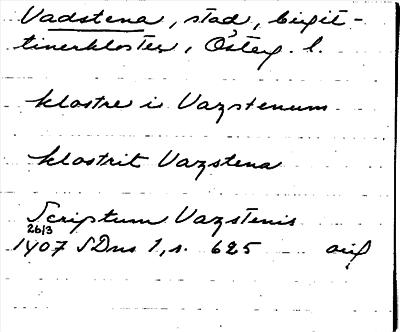 Vadstena, stad, birgit-
tinerkloster, Österg. l.
klostre i Vazstenum
klostrit Vazstena
Scriptum Vazstenis
26/3
1407 SDns 1, s. 625 orig